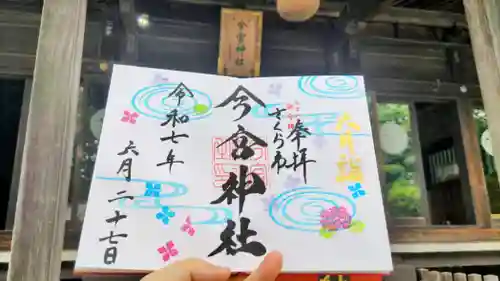 今宮神社
奉拝
さくら市
今宮神社
令和七年
六月二十七日